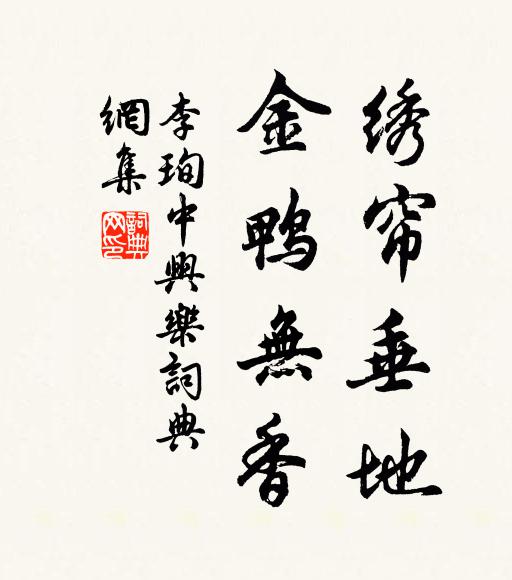 绣帘垂地
金鸭無香
李珣中興樂詞典
網集
詞典網印